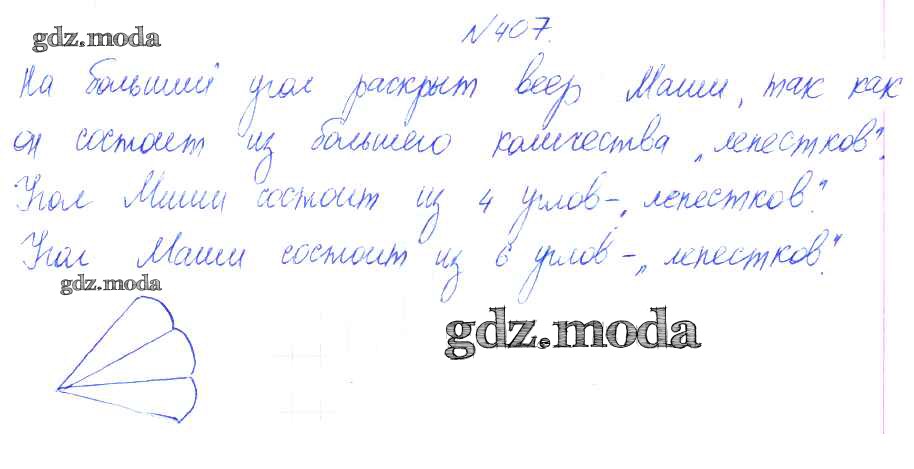 №407.
gdz.moda
На больший угол раскрыт веер Маши, так как
он состоит из большего количества „лепестков".
Угол Миши состоит из 4 углов-„лепестков".
Угол Маши состоит из 6 углов-„лепестков".
gdz.moda
gdz.moda